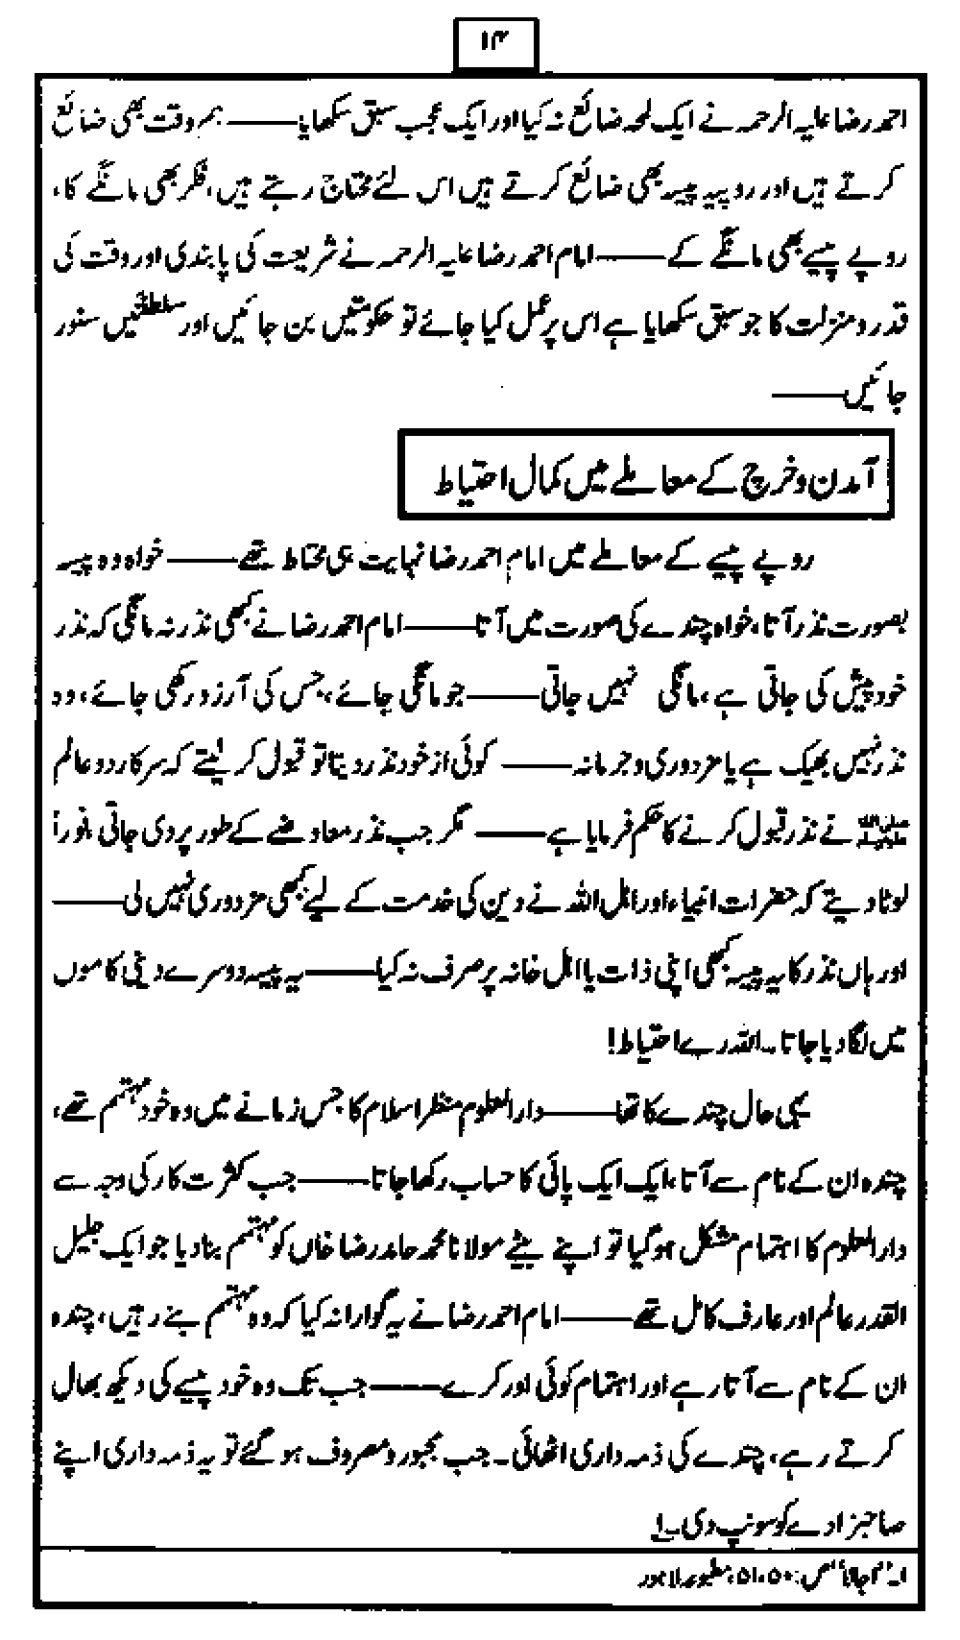 ۱۴
احمد رضا علیہ الرحمہ نے ایک لمحہ ضائع نہ کیا اور ایک عجب سبق سکھایا——ہم وقت بھی ضائع
کرتے ہیں اور روپیہ پیسہ بھی ضائع کرتے ہیں اس لئے محتاج رہتے ہیں، فکر بھی مانگے کا،
روپے پیسے بھی مانگے کے——امام احمد رضا علیہ الرحمہ نے شریعت کی پابندی اور وقت کی
قدر و منزلت کا جو سبق سکھایا ہے اس پر عمل کیا جائے تو حکومتیں بن جائیں اور سلطنتیں سنور
جائیں——
آمدن و خرچ کے معاملے میں کمال احتیاط
روپے پیسے کے معاملے میں امام احمد رضا نہایت ہی محتاط تھے——خواہ وہ پیسہ
بصورت نذر آتا، خواہ چندے کی صورت میں آتا——امام احمد رضا نے کبھی نذر نہ مانگی کہ نذر
خود پیش کی جاتی ہے، مانگی نہیں جاتی——جو مانگی جائے، جس کی آرزو رکھی جائے، وہ
نذر نہیں بھیک ہے یا مزدوری و جرمانہ——کوئی از خود نذر دیتا تو قبول کر لیتے کہ سرکار دو عالم
ﷺ نے نذر قبول کرنے کا حکم فرمایا ہے——مگر جب نذر معاوضے کے طور پر دی جاتی، فوراً
لوٹا دیتے کہ حضرات انبیاء اور اہل اللہ نے دین کی خدمت کے لیے کبھی مزدوری نہیں لی——
اور ہاں نذر کا یہ پیسہ کبھی اپنی ذات یا اہل خانہ پر صرف نہ کیا——یہ پیسہ دوسرے دینی کاموں
میں لگا دیا جاتا۔۔اللہ رے احتیاط!
یہی حال چندے کا تھا——دارالعلوم منظر اسلام کا جس زمانے میں وہ خود مہتمم تھے،
چندہ ان کے نام سے آتا، ایک ایک پائی کا حساب رکھا جاتا——جب کثرت کار کی وجہ سے
دارالعلوم کا اہتمام مشکل ہو گیا تو اپنے بیٹے مولانا محمد حامد رضا خاں کو مہتمم بنا دیا جو ایک جلیل
القدر عالم اور عارف کامل تھے——امام احمد رضا نے یہ گوارا نہ کیا کہ وہ مہتمم بنے رہیں، چندہ
ان کے نام سے آتا رہے اور اہتمام کوئی اور کرے——جب تک وہ خود پیسے کی دیکھ بھال
کرتے رہے، چندے کی ذمہ داری اٹھائی۔ جب مجبور و مصروف ہو گئے تو یہ ذمہ داری اپنے
صاحبزادے کو سونپ دی۔۱
ص: ۵۰، ۵۱، مطبوعہ لاہور